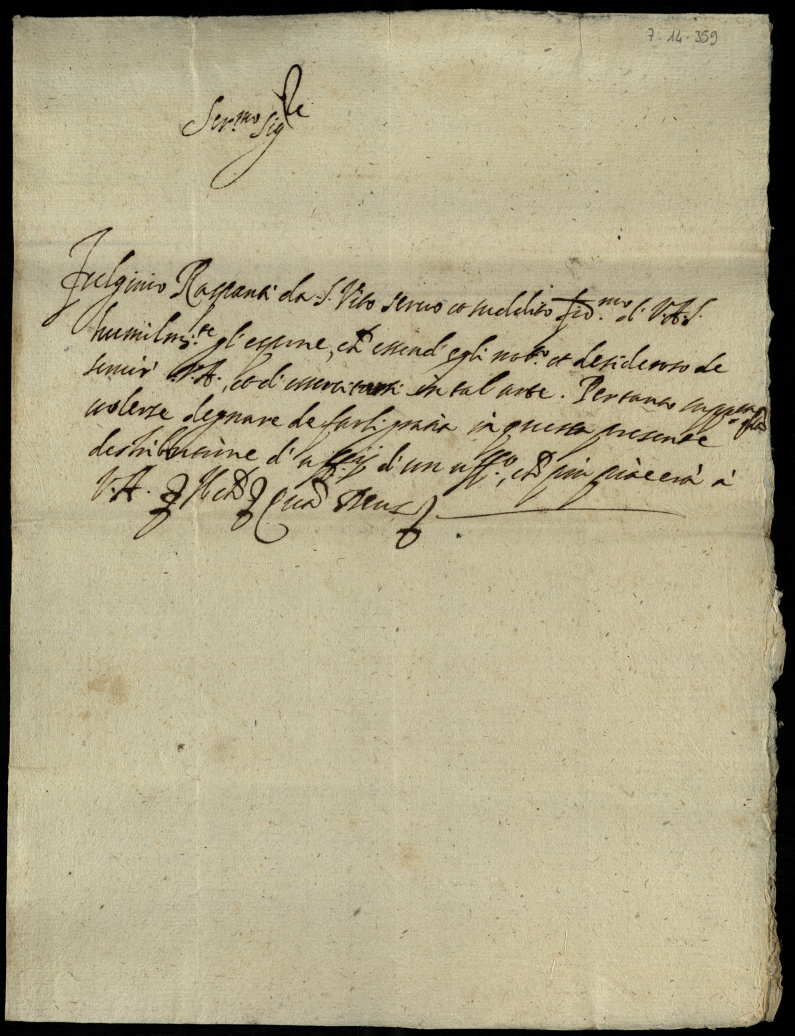 7-14-359
Ser.mo Sig.re
Fulginio da S. Vito servo et suddito fid.mo di V.A.S.
humilm.te gli espone, ch'essend' egli not.o et desideroso de
servir V.A., et di essercitarsi in tal' arte. Pertanto supp.ca
volerse degnare de farli gratia in questa presente
destributione d'uffitij d'un uff.o, che più piacerà à
V.A. Deus